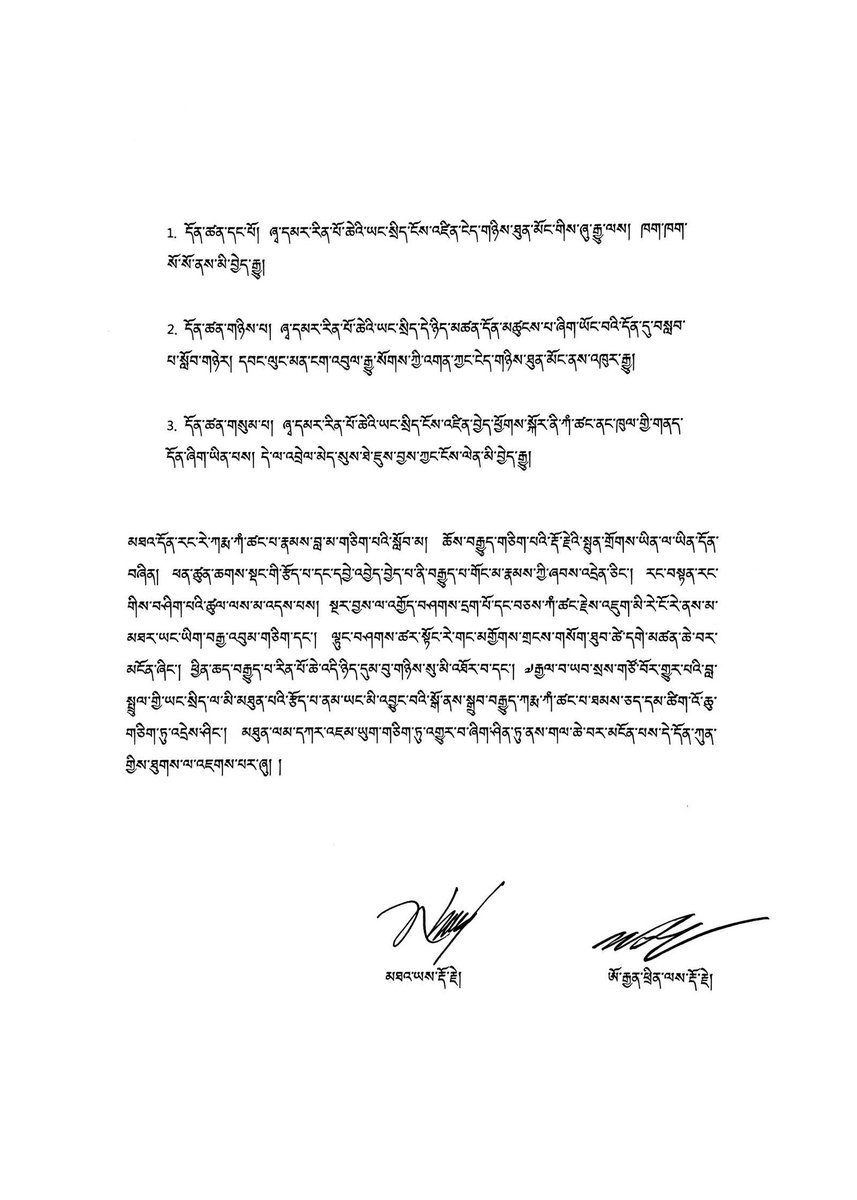 1. དོན་ཚན་དང་པོ། ཞྭ་དམར་རིན་པོ་ཆེའི་ཡང་སྲིད་ངོས་འཛིན་ངེད་གཉིས་ཐུན་མོང་གིས་ཞུ་རྒྱུ་ལས། ཁག་ཁག་
སོ་སོ་ནས་མི་བྱེད་རྒྱུ།
2. དོན་ཚན་གཉིས་པ། ཞྭ་དམར་རིན་པོ་ཆེའི་ཡང་སྲིད་དེ་ཉིད་མཚན་དོན་མཚུངས་པ་ཞིག་ཡོང་བའི་དོན་དུ་བསླབ་
པ་སློབ་གཉེར། དབང་ལུང་མན་ངག་འབུལ་རྒྱུ་སོགས་ཀྱི་འགན་ཀྱང་ངེད་གཉིས་ཐུན་མོང་ནས་འཁུར་རྒྱུ།
3. དོན་ཚན་གསུམ་པ། ཞྭ་དམར་རིན་པོ་ཆེའི་ཡང་སྲིད་ངོས་འཛིན་བྱེད་ཕྱོགས་སྐོར་ནི་ཀཾ་ཚང་ནང་ཁུལ་གྱི་གནད་
དོན་ཞིག་ཡིན་པས། དེ་ལ་འབྲེལ་མེད་སུས་ཐེ་ཇུས་བྱས་ཀྱང་ངོས་ལེན་མི་བྱེད་རྒྱུ།
མཐའ་དོན་རང་རེ་ཀརྨ་ཀཾ་ཚང་པ་རྣམས་བླ་མ་གཅིག་པའི་སློབ་མ། ཆོས་བརྒྱུད་གཅིག་པའི་རྡོ་རྗེའི་སྤུན་གྲོགས་ཡིན་ལ་ཡིན་དོན་
བཞིན། ཕན་ཚུན་ཆགས་སྡང་གི་རྩོད་པ་དང་དབྱེ་འབྱེད་བྱེད་པ་ནི་བརྒྱུད་པ་གོང་མ་རྣམས་ཀྱི་ཞབས་འདྲེན་ཅིང་། རང་བསྟན་རང་
གིས་བཤིག་པའི་ཚུལ་ལས་མ་འདས་པས། སྔར་བྱས་ལ་འགྱོད་བཤགས་དྲག་པོ་དང་བཅས་ཀཾ་ཚང་རྗེས་འཇུག་མི་རེ་ངོ་རེ་ནས་མ་
མཐར་ཡང་ཡིག་བརྒྱ་འབུམ་གཅིག་དང་། ལྟུང་བཤགས་ཚར་སྟོང་རེ་གང་མགྱོགས་གྲངས་གསོག་ཐུབ་ཚེ་དགེ་མཚན་ཆེ་བར་
མངོན་ཞིང་། ཕྱིན་ཆད་བརྒྱུད་པ་རིན་པོ་ཆེ་འདི་ཉིད་དུམ་བུ་གཉིས་སུ་མི་འཐོར་བ་དང་། ༧རྒྱལ་བ་ཡབ་སྲས་གཙོ་བོར་གྱུར་པའི་བླ་
སྤྲུལ་གྱི་ཡང་སྲིད་ལ་མི་མཐུན་པའི་རྩོད་པ་ནམ་ཡང་མི་འབྱུང་བའི་སྒོ་ནས་སྒྲུབ་བརྒྱུད་ཀརྨ་ཀཾ་ཚང་པ་ཐམས་ཅད་དམ་ཚིག་འོ་ཆུ་
གཅིག་ཏུ་འདྲེས་ཤིང་། མཐུན་ལམ་དཀར་འཇམ་ཡུག་གཅིག་ཏུ་འགྱུར་བ་ཞིག་ཤིན་ཏུ་ནས་གལ་ཆེ་བར་མངོན་པས་དེ་དོན་ཀུན་
གྱིས་ཐུགས་ལ་འཇགས་པར་ཞུ། །
མཐའ་ཡས་རྡོ་རྗེ།
ཨོ་རྒྱན་ཕྲིན་ལས་རྡོ་རྗེ།